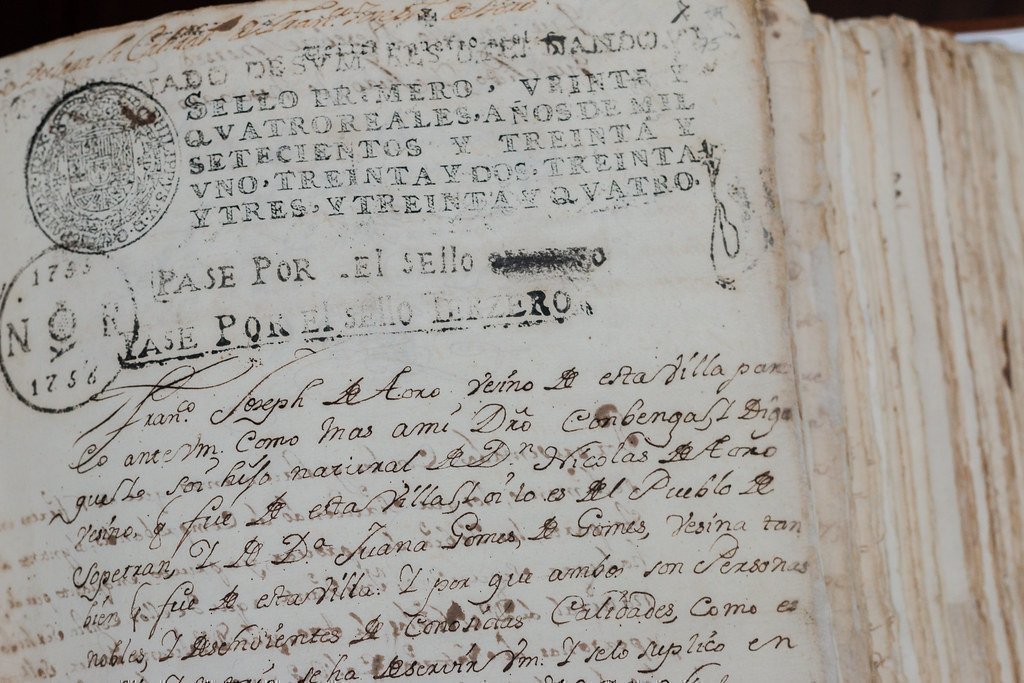 SELLO PRIMERO, VEINTE Y
QVATRO REALES, AÑOS DE MIL
SETECIENTOS Y TREINTA Y
VNO, TREINTA Y DOS, TREINTA
Y TRES, Y TREINTA Y QVATRO.
1755
N R
1756
PASE POR EL SELLO
PASE POR EL SELLO TERZERO
Franco. Joseph de Toro Vesino de esta Villa pares
Co ante Vm. Como mas ami Dro Conbenga, y Digo
que yo soi hijo natural de Dn. Nicolas de Toro
vesino, q fue de esta Villa, y oi lo es del Pueblo de
Sopetran, Y de Da. Juana Gomes, de Gomes, Vesina tan
bien q fue de esta Villa. Y por que ambos son Personas
nobles, Y desendientes de Conosidas Calidades, Como es
se ha de servir Vm. Y se lo suplico en